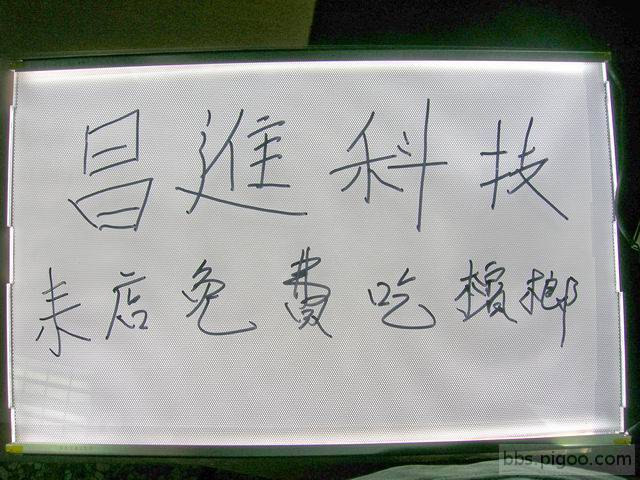 昌進科技
来店免費吃檳榔
bbs.pigoo.com